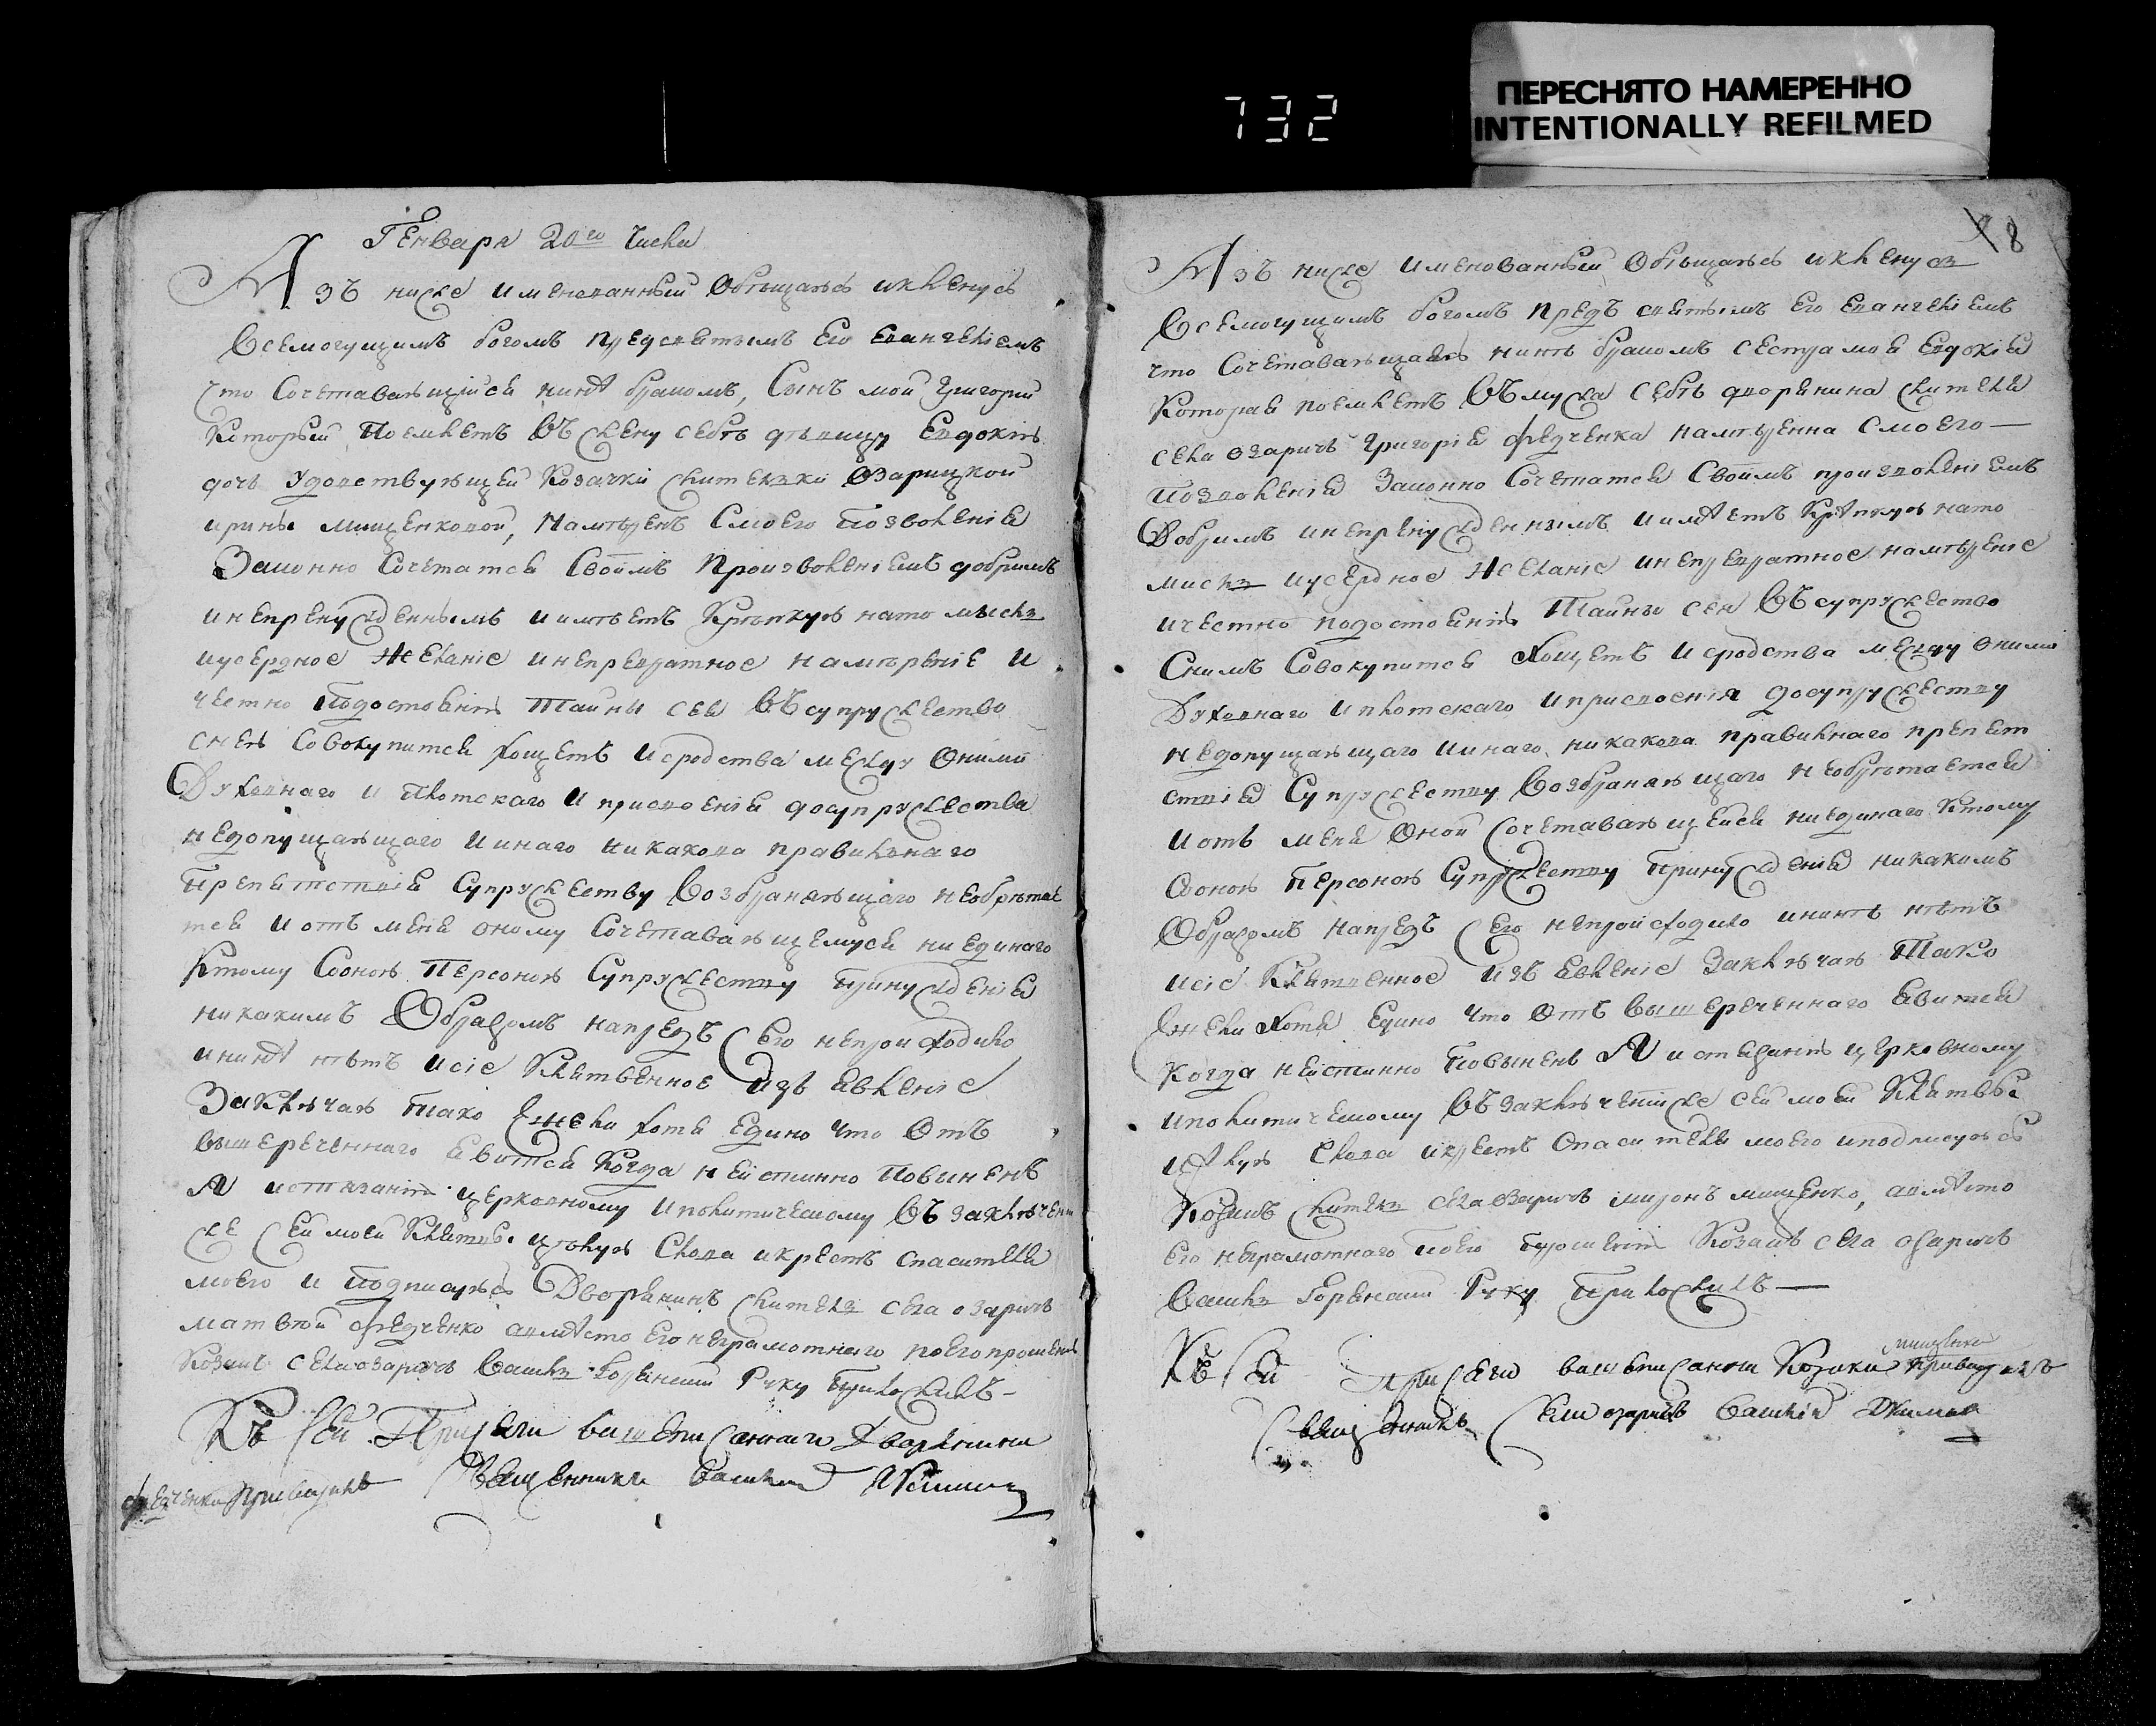 732
ПЕРЕСНЯТО НАМЕРЕННО
INTENTIONALLY REFILMED
Генваря 20го числа
Азъ ниже именованный обѣщаюсь и кленусь
Всемогущимъ богомъ предсвятымъ Его Евангелiемъ
Что Сочетавающiйся нинѣ бракомъ, Сынъ мой Григорiй
Который Поемлетъ Въ жену себѣ дѣвицу Евдокiю
дочь удовствующей Козачки жителки Озарицкой
ирины мищенковой, Намѣренъ Смоего Позволенiя
Законно Сочетатся Своимъ Произволенiемъ добримъ
инепренужденнымъ иимѣетъ Крѣпкую нато мысль
иусердное Желанiе инепревратное намѣренiе и
честно Подостоянiю Тайны сея Въсупружество
снею Совокупится хощетъ исродства между Оними
Духовнаго и Плотскаго и присвоенiя досупружества
недопущающаго иинаго никакова правилнаго
Препятствiя Супружеству Возбраняющаго необрѣтае
тся и отъ меня оному Сочетавающемуся ниединаго
Ктому Соною Персоною Супружеству принужденiя
никакимъ Образомъ напредъ Сего непроисходило
ининѣ нѣтъ исiе Клятвенное изъявленiе
Заключаю тако Ежели хотя Едино что Отъ
вышереченнаго явится Когда неистинно Повыненъ
Я истязанiю церковному иполитичешому Въ заключени
же Сей моей Клятвы цѣлую Слова икрестъ Спасителя
моего и Подписуюсь Дворянинъ житель села озаричъ
матвѣй федченко авмѣсто Его неграмотнаго поего прошенiю
Козакъ села озаричъ Василь Руку Приложилъ-
Къ Сей Присяги вышеписаннаго Дворянина
федченка приводилъ Священникъ Василiй
8
Азъ ниже именованный обѣщаюсь икленусь
Всемогущимъ богомъ предъ святымъ Его Евангелiемъ
что Сочетавающаясь нинѣ бракомъ сестра моя Евдокiя
Которая поемлетъ Въмужа себѣ дворянина жителя
села озаричъ Григорiя федченка намѣренна Смоего—
Позволенiя Законно Сочетатся Своимъ произволенiемъ
Добримъ инепренужденнымъ иимѣетъ Крѣпкую нато
мисль иусердное Желанiе инепревратное намѣренiе
ичестно подостоянiю Тайны сея Въсупружество
Снимъ Совокупится Хощетъ исродства между оними
Духовнаго иплотскаго иприсвоенiя досупружеству
недопущающаго иинаго никакова правилнаго препят
ствiя Супружеству Возбраняющаго необрѣтается
иотъ меня Оной Сочетавающейся ниединаго Ктому
Соною Персоною Супружеству Принужденiя никакимъ
Образомъ напредъ Сего непроисходило ининѣ нѣтъ
исiе Клятвенное изъявленiе Заключаю Тако
Ежели Хотя Едино что Отъ вышереченнаго явится
Когда неистинно Повыненъ Я истязанiю церковному
иполитичешому Въ заключенiиже сей моей Клятвы
цѣлую Слова икрестъ Спасителя моего иподписуюсь
Козакъ житель села Озаричъ миронъ мищенко, авмѣсто
его неграмотнаго поего прошенiю Козакъ села озаричъ
Василь Руку Приложилъ—
Къ Сей Присяги вышеписанного Козака мищенка приводилъ
Священникъ Села озаричъ Василiй